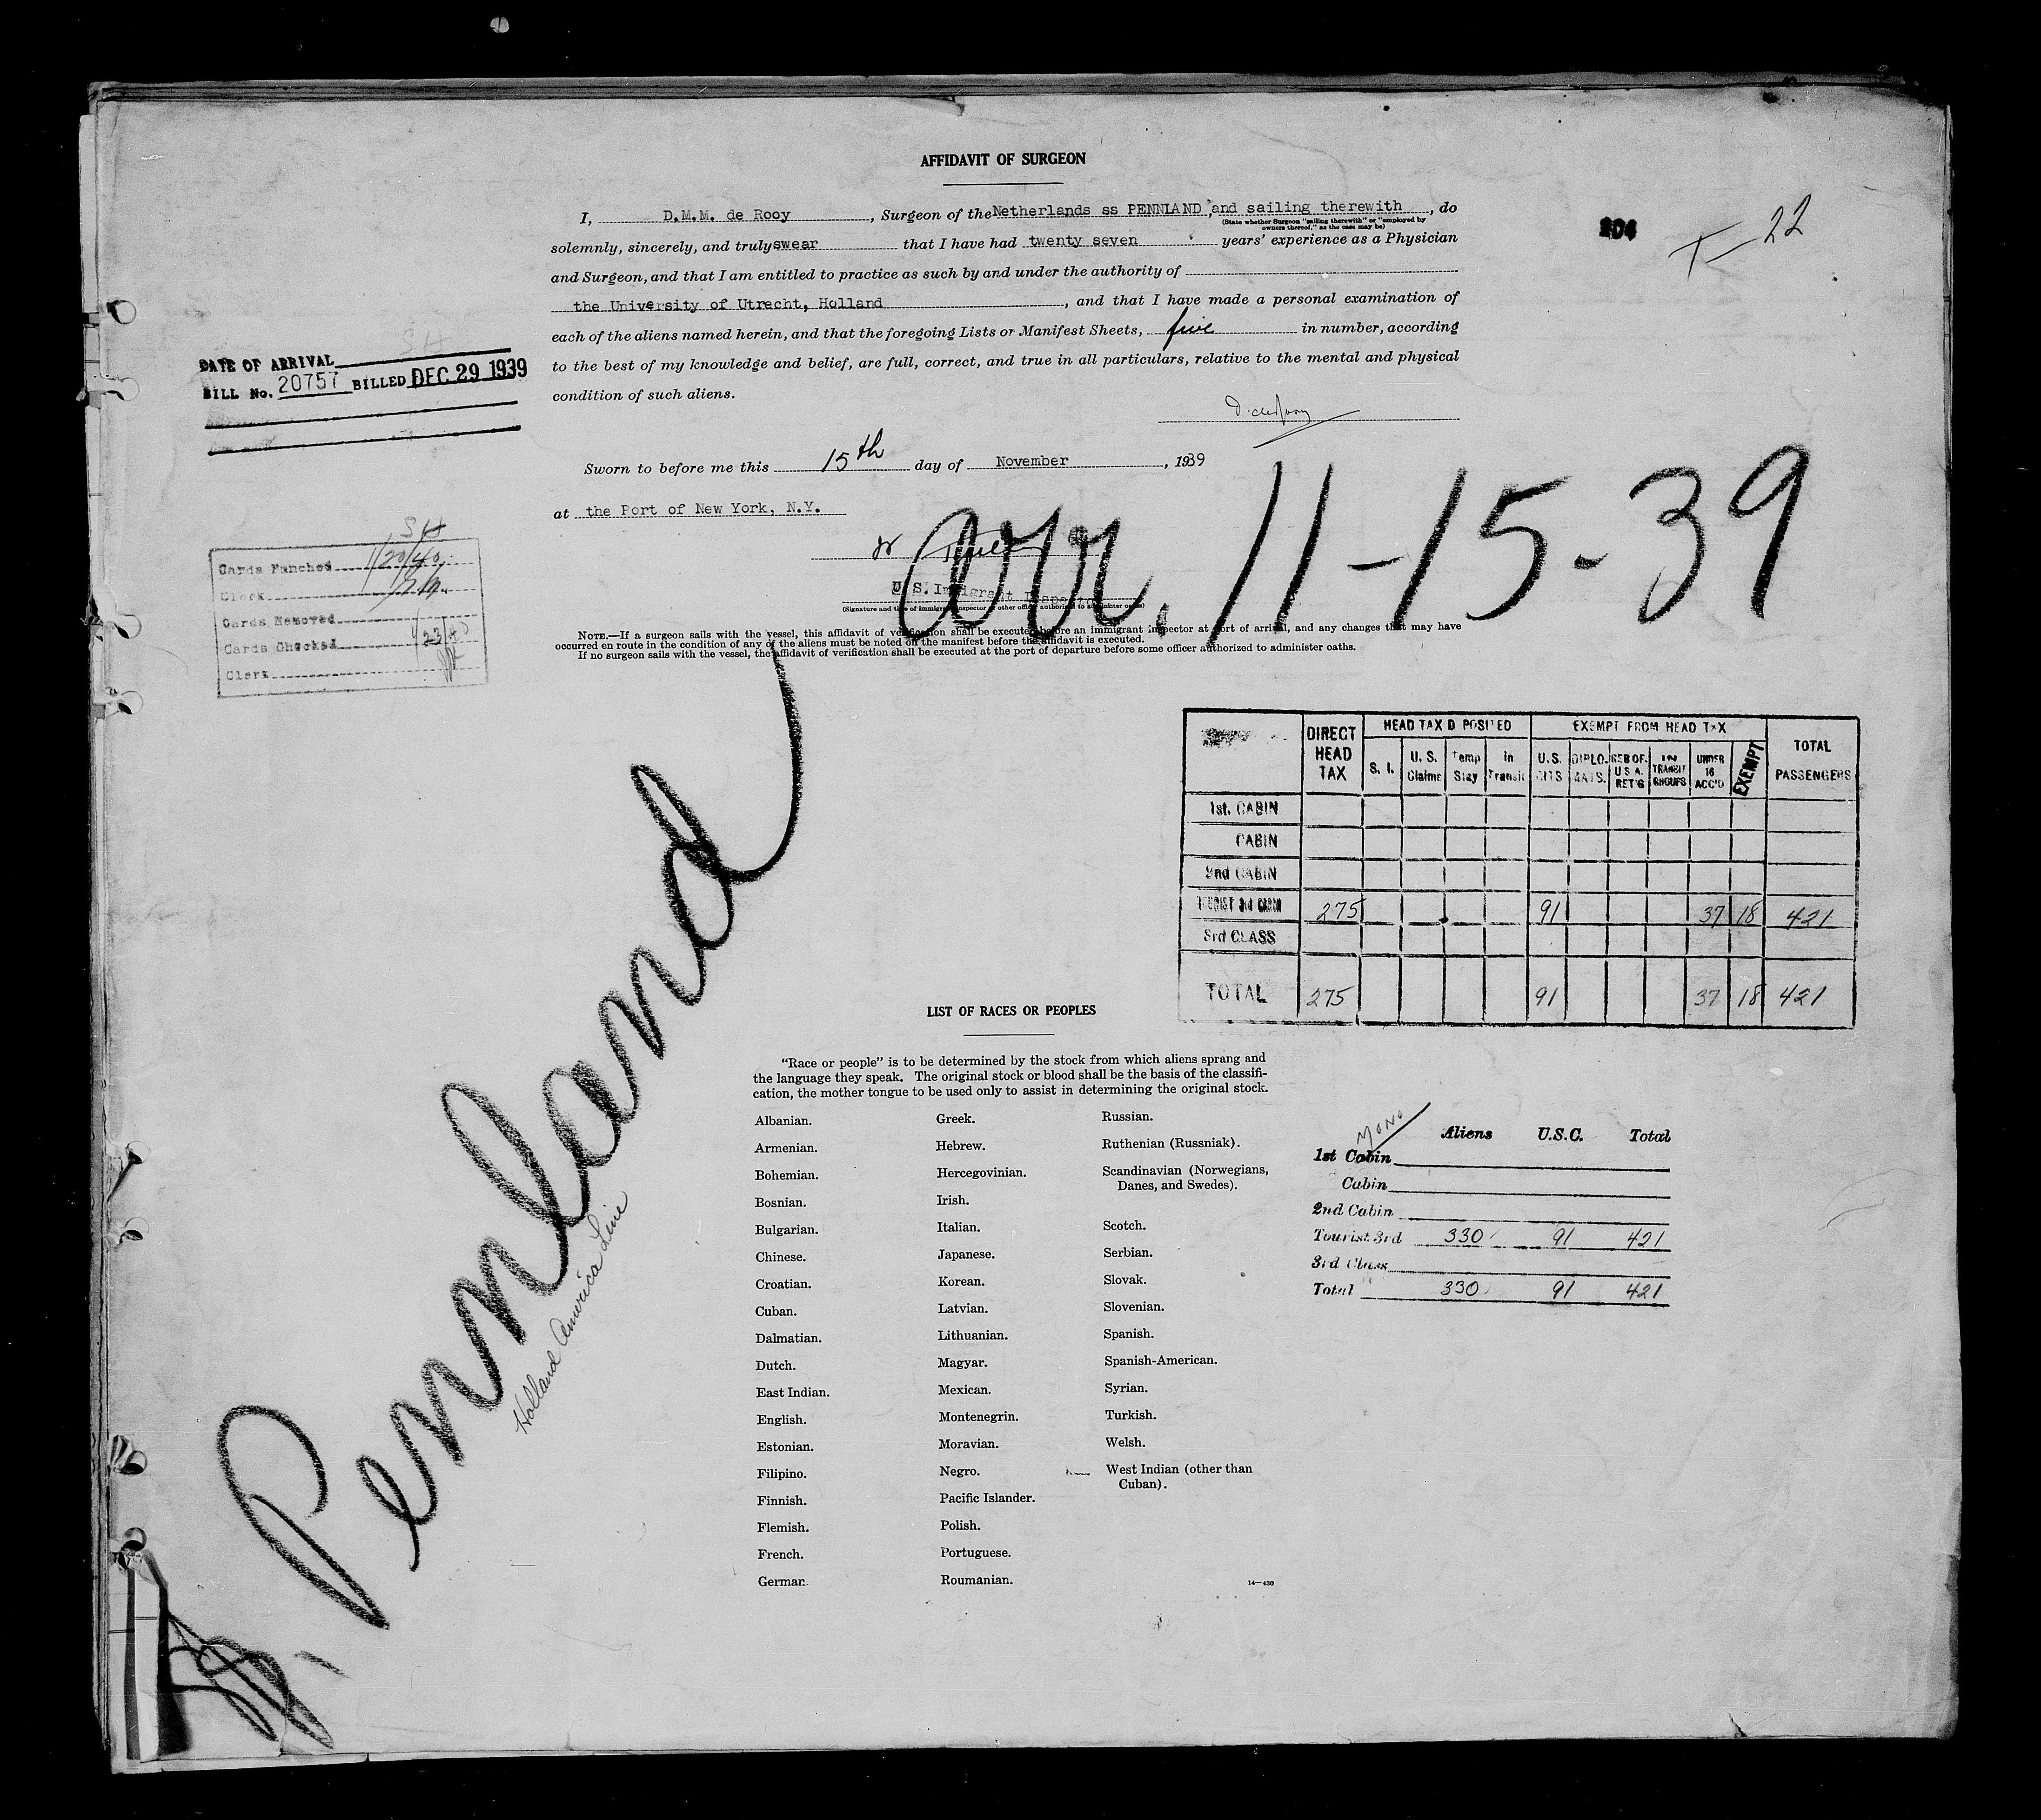 AFFIDAVIT OF SURGEON
I, D.M.M. de Rooy, Surgeon of the Netherlands ss PENNIAND, and sailing therewith, do
(State whether Surgeon "sailing therewith" or "employed by
owners thereof," as the case may be)
solemnly, sincerely, and truly swear that I have had twenty seven years' experience as a Physician
and Surgeon, and that I am entitled to practice as such by and under the authority of
the University of Utrecht, Holland, and that I have made a personal examination of
each of the aliens named herein, and that the foregoing Lists or Manifest Sheets, five in number, according
to the best of my knowledge and belief, are full, correct, and true in all particulars, relative to the mental and physical
condition of such aliens.
204
T-22
SH
DATE OF ARRIVAL
BILL No. 20757 BILLED DEC 29 1939
Sworn to before me this 15th day of November, 1939
at the Port of New York, N.Y.
arr. 11-15-39
U.S. Immigrant Inspector
(Signature and title of immigrant inspector or other officer authorized to administer oaths)
NOTE.—If a surgeon sails with the vessel, this affidavit of verification shall be executed before an immigrant inspector at port of arrival, and any changes that may have
occurred en route in the condition of any of the aliens must be noted on the manifest before the affidavit is executed.
If no surgeon sails with the vessel, the affidavit of verification shall be executed at the port of departure before some officer authorized to administer oaths.
SH
Cards Punched 1/20/40
Clerk
Cards Removed
Cards Checked 1/23/40
Clerk
DIRECT HEAD TAX HEAD TAX D POSITED EXEMPT FROM HEAD TAX TOTAL PASSENGERS
S. I. U. S. Claims Temp Stay In Transit U.S. CITS DIPLO-MATS. RES OF. U S A. RET'G IN TRANSIT GROUPS UNDER 16 ACC'D EXEMPT
1st. CABIN
CABIN
2nd CABIN
TOURIST 3rd CABIN 275 91 37 18 421
3rd CLASS
TOTAL 275 91 37 18 421
SS. Pennland
Holland America Line
LIST OF RACES OR PEOPLES
"Race or people" is to be determined by the stock from which aliens sprang and
the language they speak. The original stock or blood shall be the basis of the classifi-
cation, the mother tongue to be used only to assist in determining the original stock.
Albanian.
Armenian.
Bohemian.
Bosnian.
Bulgarian.
Chinese.
Croatian.
Cuban.
Dalmatian.
Dutch.
East Indian.
English.
Estonian.
Filipino.
Finnish.
Flemish.
French.
German.
Greek.
Hebrew.
Hercegovinian.
Irish.
Italian.
Japanese.
Korean.
Latvian.
Lithuanian.
Magyar.
Mexican.
Montenegrin.
Moravian.
Negro.
Pacific Islander.
Polish.
Portuguese.
Roumanian.
Russian.
Ruthenian (Russniak).
Scandinavian (Norwegians,
Danes, and Swedes).
Scotch.
Serbian.
Slovak.
Slovenian.
Spanish.
Spanish-American.
Syrian.
Turkish.
Welsh.
West Indian (other than
Cuban).
14—430
Aliens U.S.C. Total
1st Cabin
Cabin
2nd Cabin
Tourist 3rd 330 91 421
3rd Class
Total 330 91 421